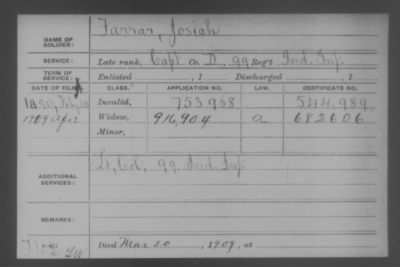 NAME OF SOLDIER: Farrar, Josiah
SERVICE: Late rank, Capt Co D, 99 Reg't Ind. Inf.
TERM OF SERVICE: Enlisted , 1 Discharged , 1
DATE OF FILING. CLASS. APPLICATION NO. LAW. CERTIFICATE NO.
Invalid, 753908 544.989
1909 Apr 2 Widow, 916,904 a 682606
Minor,
ADDITIONAL SERVICES: Lt, Col, 99 Ind. Inf
REMARKS:
Died Mar 20 , 1909, at